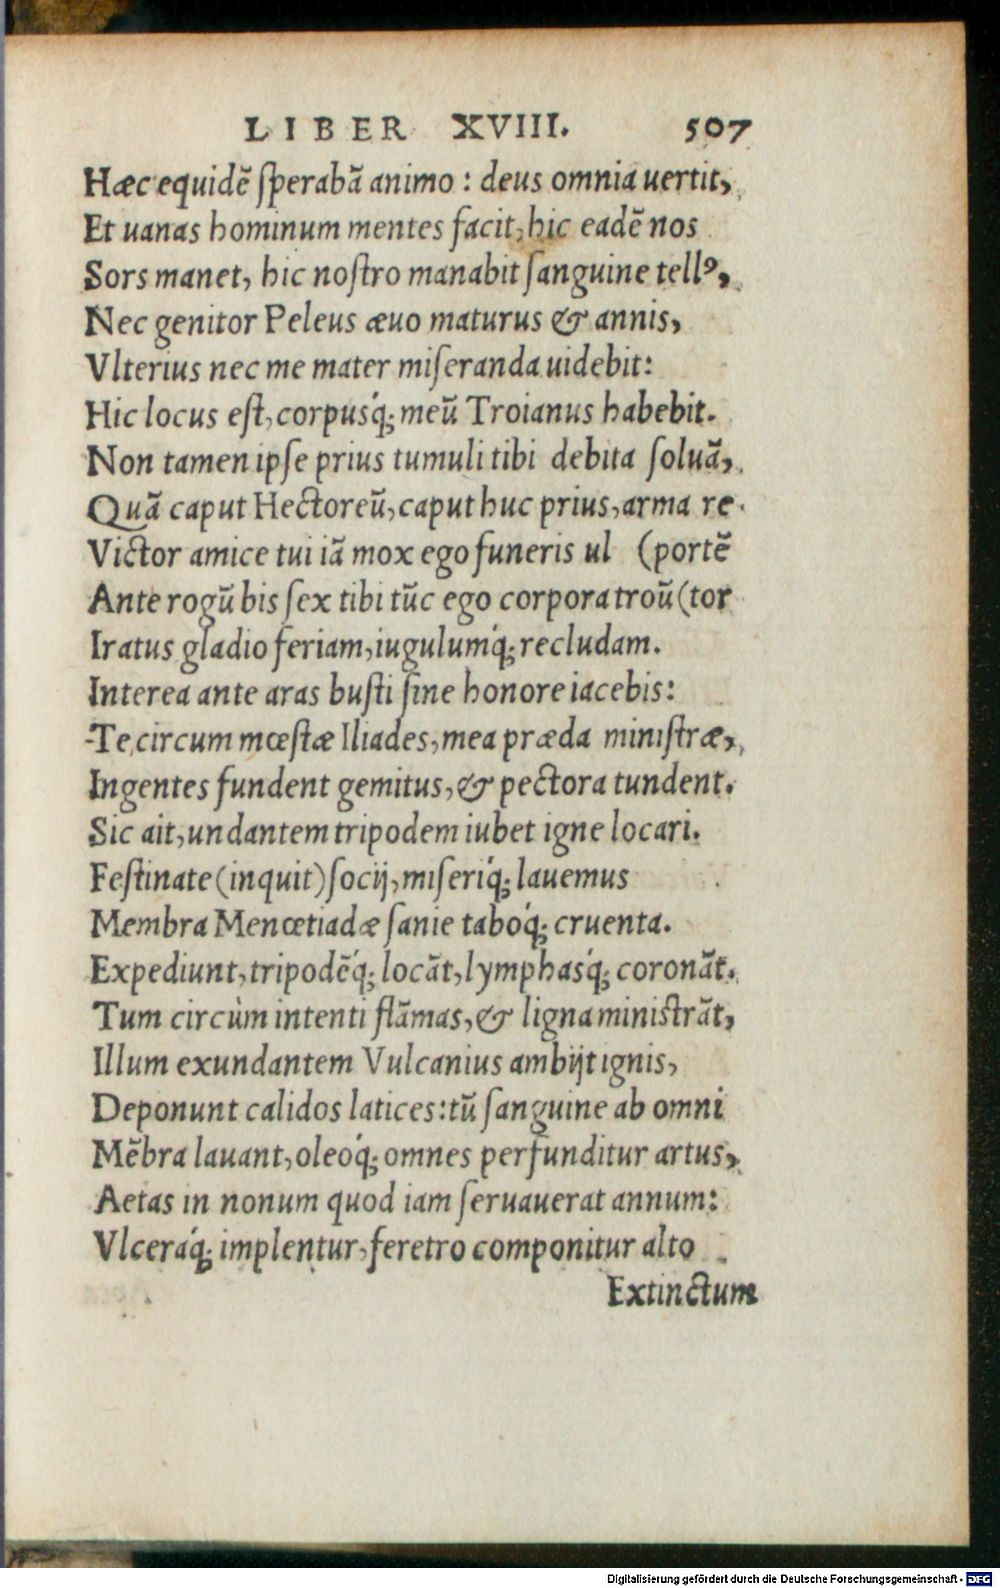 LIBER XVIII. 507
Hæc equidẽ ſperabã animo : deus omnia uertit,
Et uanas hominum mentes facit, hic eadẽ nos
Sors manet, hic noſtro manabit ſanguine tellꝰ,
Nec genitor Peleus æuo maturus & annis,
Vlterius nec me mater miſeranda uidebit:
Hic locus eſt, corpusq́; meũ Troianus habebit.
Non tamen ipſe prius tumuli tibi debita ſoluã,
Quã caput Hectoreũ, caput huc prius, arma re-
Victor amice tui iã mox ego funeris ul (portẽ
Ante rogũ bis ſex tibi tũc ego corpora troũ (tor
Iratus gladio feriam, iugulumq́; recludam.
Interea ante aras buſti ſine honore iacebis:
Te circum mœſtæ Iliades, mea præda miniſtræ,
Ingentes fundent gemitus, & pectora tundent.
Sic ait, undantem tripodem iubet igne locari.
Feſtinate (inquit) ſocij, miſeriq́; lauemus
Membra Menœtiadæ ſanie taboq́; cruenta.
Expediunt, tripodẽq́; locãt, lymphasq́; coronãt.
Tum circùm intenti flãmas, & ligna miniſtrãt,
Illum exundantem Vulcanius ambijt ignis,
Deponunt calidos latices: tũ ſanguine ab omni
Mẽbra lauant, oleoq́; omnes perfunditur artus,
Aetas in nonum quod iam ſeruauerat annum:
Vlceraq́; implentur, feretro componitur alto
Extinctum
Digitalisierung gefördert durch die Deutsche Forschungsgemeinschaft - DFG